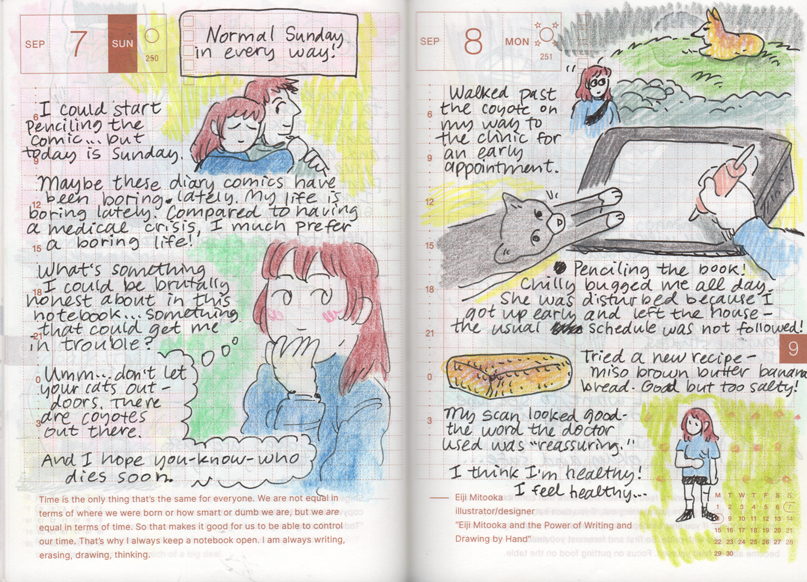 SEP 7 SUN
250
Normal Sunday
in every way!
I could start
Penciling the
comic... but
today is Sunday.
Maybe these diary comics have
been boring lately. My life is
boring lately. Compared to having
a medical crisis, I much prefer
a boring life!
What's something
I could be brutally
honest about in this
notebook... something
that could get me
in trouble?
Umm... don't let
your cats out-
doors. There
are coyotes
out there.
And I hope you-know-who
dies soon.
Time is the only thing that's the same for everyone. We are not equal in
terms of where we were born or how smart or dumb we are, but we are
equal in terms of time. So that makes it good for us to be able to control
our time. That's why I always keep a notebook open. I am always writing,
erasing, drawing, thinking.
6
9
12
15
18
21
0
3
SEP 8 MON
251
Walked past
the coyote on
my way to
the clinic for
an early
appointment.
Penciling the book!
Chilly bugged me all day.
She was disturbed because I
got up early and left the house-
the usual schedule was not followed!
Tried a new recipe-
miso brown butter banana
bread. Good but too salty!
My scan looked good-
the word the doctor
used was "reassuring."
I think I'm healthy!
I feel healthy...
6
9
12
15
18
21
0
3
9
Eiji Mitooka
illustrator/designer
"Eiji Mitooka and the Power of Writing and
Drawing by Hand"
M T W T F S S
1 2 3 4 5 6 7
8 9 10 11 12 13 14
15 16 17 18 19 20 21
22 23 24 25 26 27 28
29 30